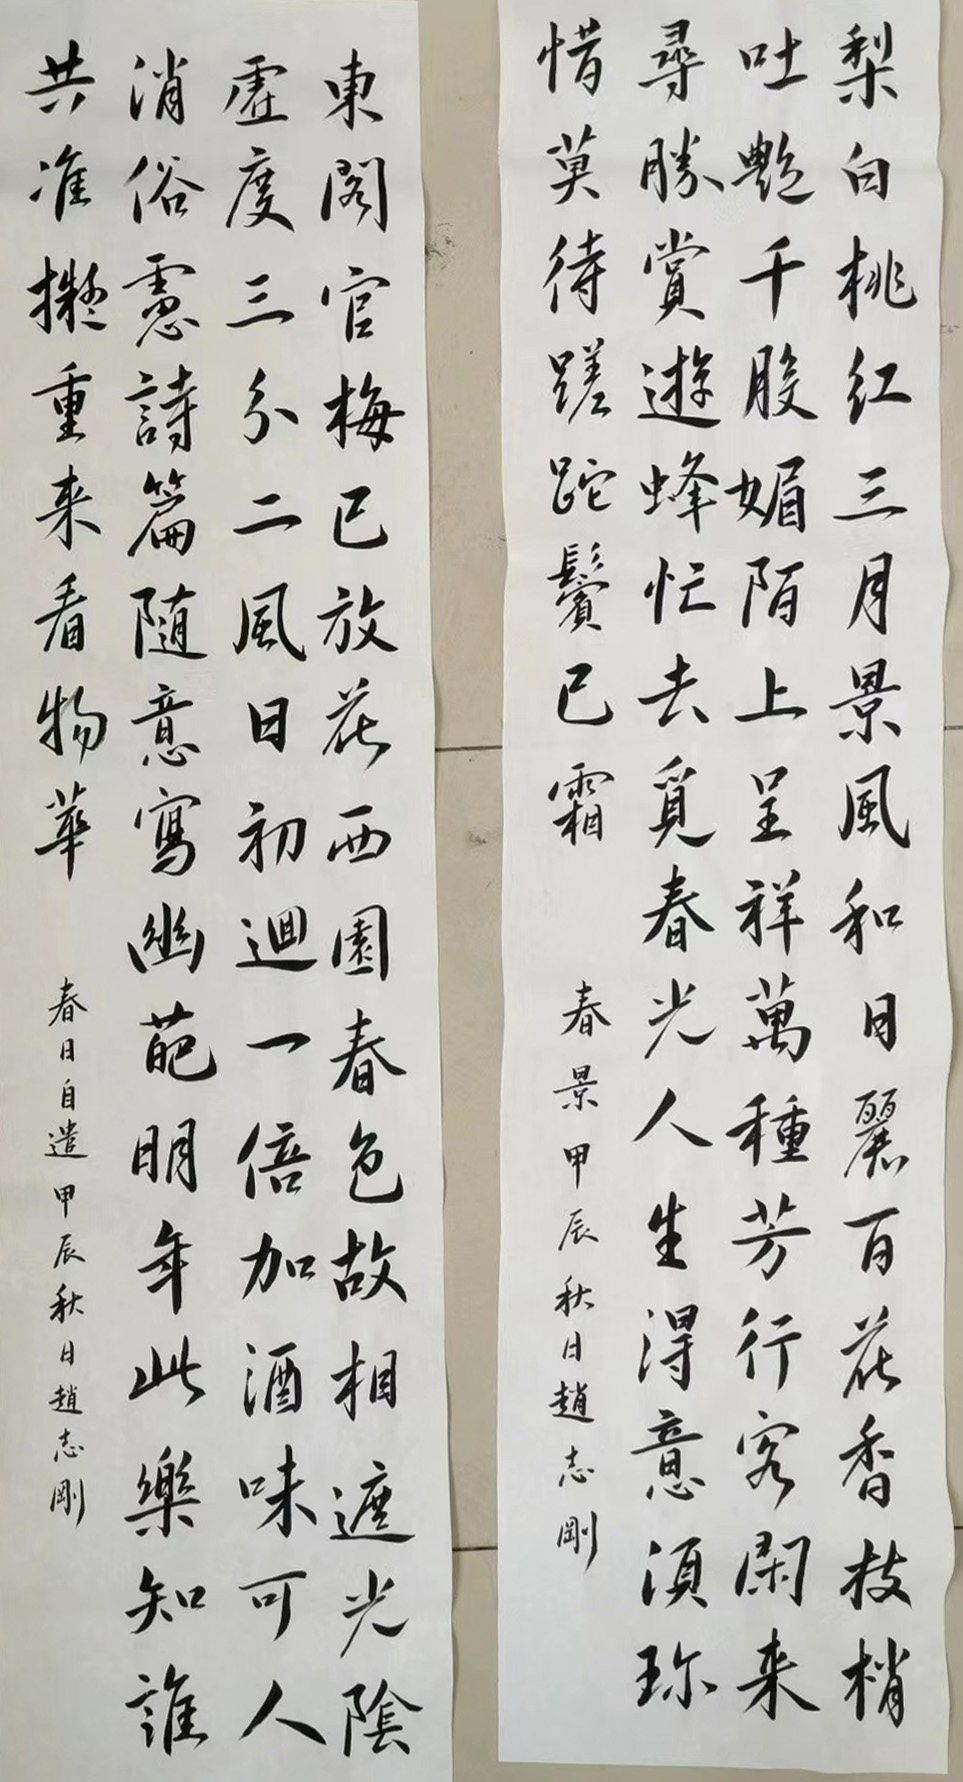 梨白桃红三月景風和日麗百花香枝梢
吐艷千般媚陌上呈祥萬種芳行客閑来
尋勝賞遊蜂忙去覓春光人生得意須珍
惜莫待蹉跎鬢已霜
春景甲辰秋日趙志剛
東閣官梅已放花西園春色故相遮光陰
虛度三分二風日初迴一倍加酒味可人
消俗慮詩篇随意寫幽葩明年此樂知誰
共准擬重来看物華
春日自遣甲辰秋日趙志剛